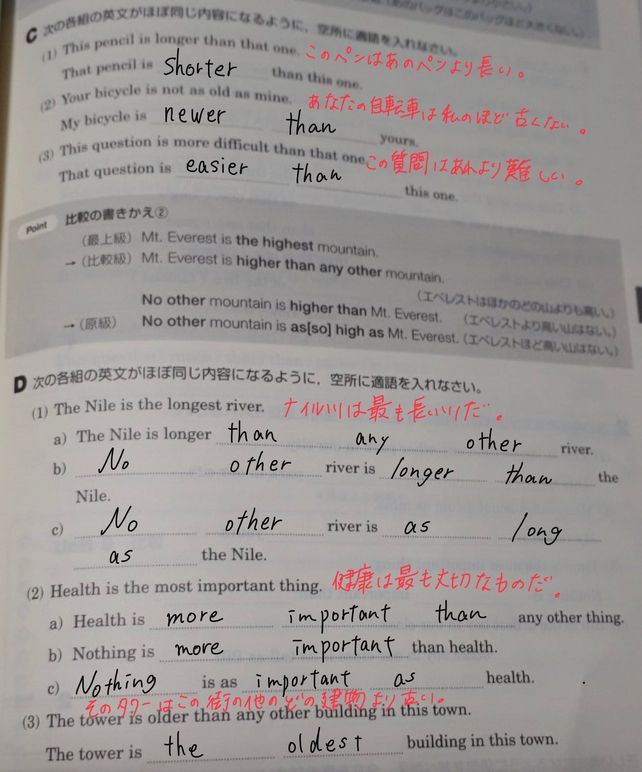 C 次の各組の英文がほぼ同じ内容になるように，空所に適語を入れなさい。
(1) This pencil is longer than that one. このペンはあのペンより長い。
That pencil is shorter than this one.
(2) Your bicycle is not as old as mine. あなたの自転車は私のほど古くない。
My bicycle is newer than yours.
(3) This question is more difficult than that one. この質問はあれより難しい。
That question is easier than this one.
Point 比較の書きかえ②
（最上級）Mt. Everest is the highest mountain.
→（比較級）Mt. Everest is higher than any other mountain.
（エベレストはほかのどの山よりも高い。）
No other mountain is higher than Mt. Everest. （エベレストより高い山はない。）
→（原級） No other mountain is as[so] high as Mt. Everest.（エベレストほど高い山はない。）
D 次の各組の英文がほぼ同じ内容になるように，空所に適語を入れなさい。
(1) The Nile is the longest river. ナイル川は最も長い川だ。
a) The Nile is longer than any other river.
b) No other river is longer than the
Nile.
c) No other river is as long
as the Nile.
(2) Health is the most important thing. 健康は最も大切なものだ。
a) Health is more important than any other thing.
b) Nothing is more important than health.
c) Nothing is as important as health.
そのタワーはこの街の他のどの建物より古い。
(3) The tower is older than any other building in this town.
The tower is the oldest building in this town.